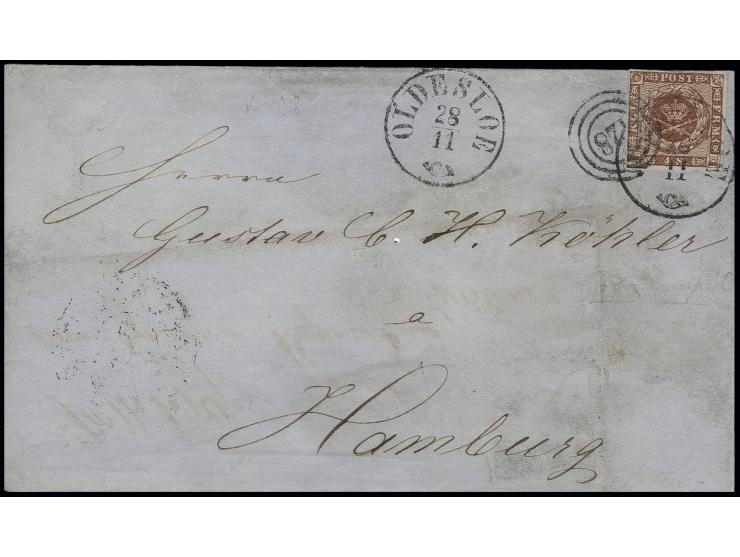 OLDESLOE
28
11
87
POST
FRM
4 S
11
Herrn
Gustav C. H. Köhler
a
Hamburg